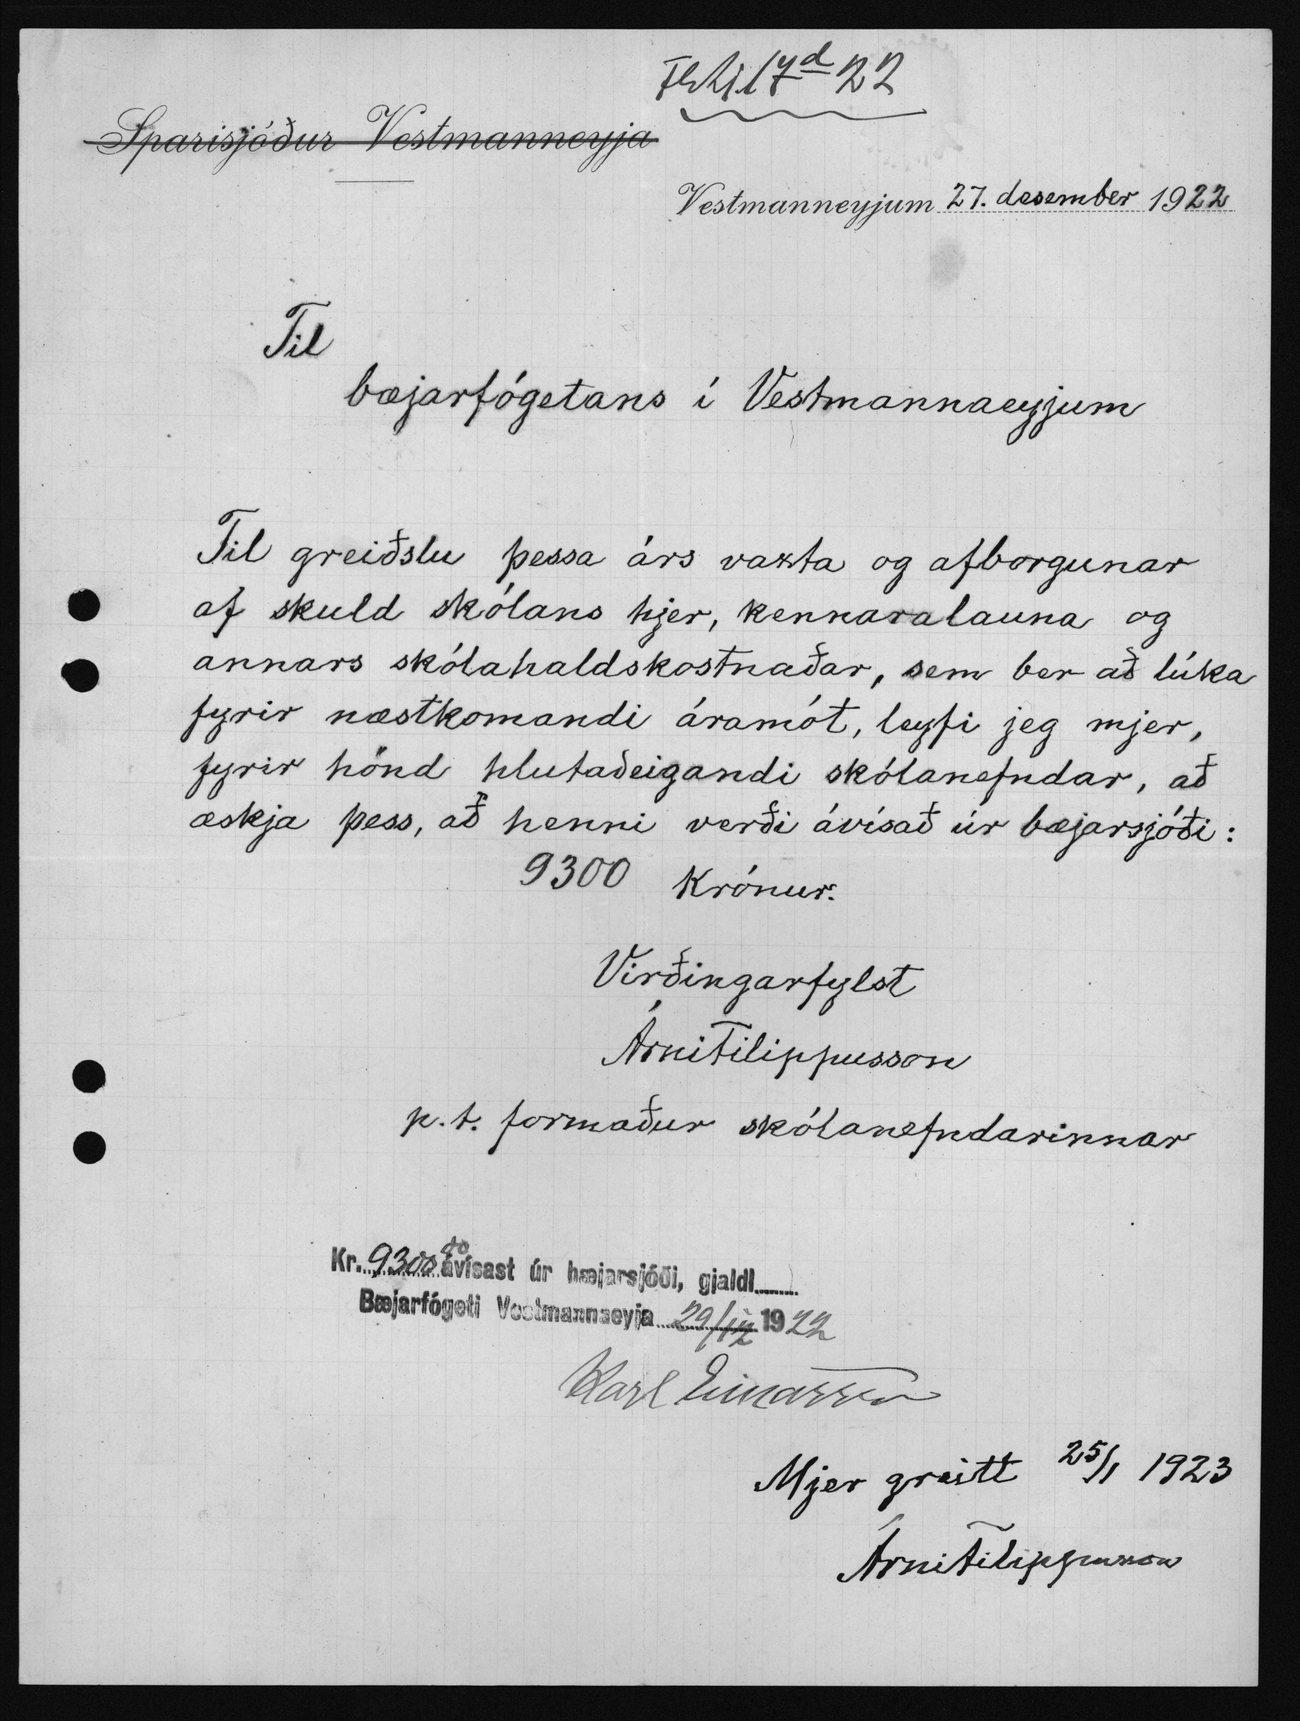 17d 22
Sparisjóður Vestmanneyja
Vestmanneyjum 27. desember 1922
Til
bæjarfógetans í Vestmannaeyjum
Til greiðslu þessa árs vaxta og afborgunar
af skuld skólans hjer, kennaralauna og
annars skólahaldskostnaðar, sem ber að lúka
fyrir næstkomandi áramót, leyfi jeg mjer,
fyrir hönd hlutaðeigandi skólanefndar, að
æskja þess, að henni verði ávísað úr bæjarsjóði:
9300 Krónur.
Virðingarfylst
Árni Filippusson
p.t. formaður skólanefndarinnar
Kr. 9300 00 ávísast úr bæjarsjóði, gjaldl
Bæjarfógeti Vestmannaeyja 29/12 1922
Karl Einarsson
Mjer greitt 25/1 1923
Árni Filippusson